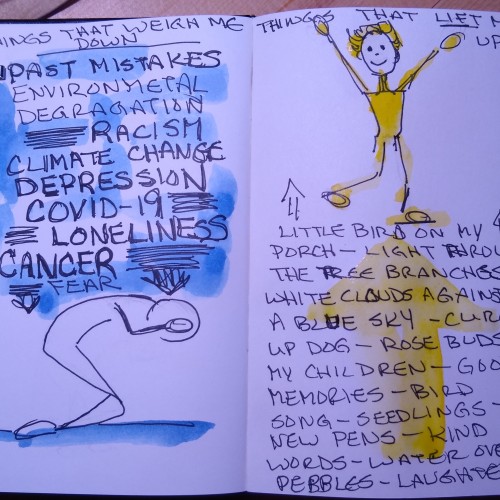 HINGS THAT WEIGH ME
DOWN
PAST MISTAKES
ENVIRONMETAL
DEGRAGATION
RACISM
CLIMATE CHANGE
DEPRESSION
COVID-19
LONELINESS
CANCER
FEAR
THINGS THAT LIFT
UP
LITTLE BIRD ON MY
PORCH - LIGHT THROU
THE TREE BRANCHES
WHITE CLOUDS AGAINS
A BLUE SKY - CUR
UP DOG - ROSE BUDS
MY CHILDREN - GOO
MEMORIES - BIRD
SONG - SEEDLINGS -
NEW PENS - KIND
WORDS - WATER OVE
PEBBLES - LAUGHTE